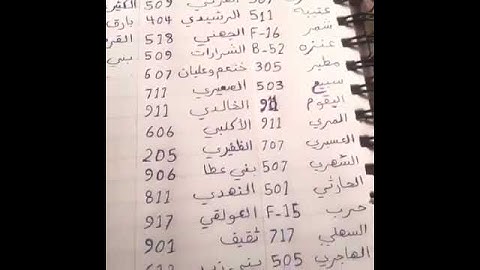 509 الكثير
عتيبة 511 الرشيدي 404 بارق
شمر F-16 الجهني 518 القر
عنزه B-52 الشرارات 509 بني
مطير 305 خثعم وعليان 607
سبيع 503 الصعيري 711
البقوم 911 الخالدي 911
المري 911 الأكلبي 606
العسيري 707 الظفيري 205
الشهري 507 بني عطا 906
الحارثي 501 النهدي 811
حرب F-15 العولقي 917
السهلي 717 ثقيف 901
الهاجري 505